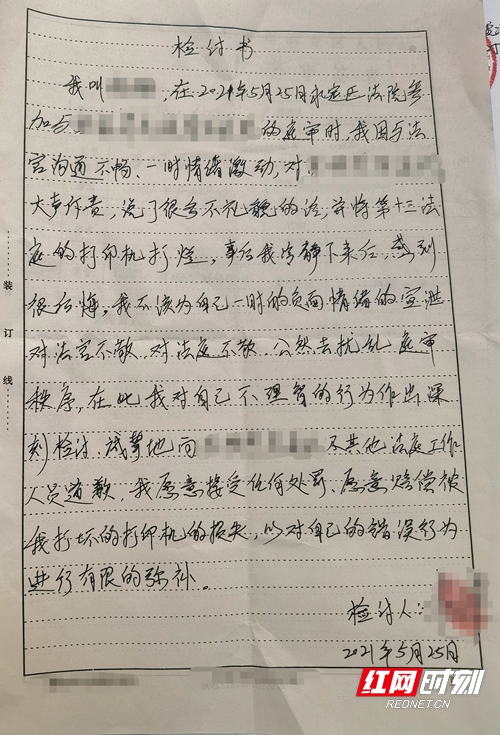 检讨书
我叫 ，在2021年5月25日永定区法院参
加与 的庭审时，我因与法
官沟通不畅、一时情绪激动，对
大声斥责，说了很多不礼貌的话，并将第十三法
庭的打印机打烂，事后我冷静下来后，感到
很后悔，我不该为自己一时的负面情绪的宣泄
对法官不敬、对法庭不敬、公然去扰乱庭审
秩序，在此我对自己不理智的行为作出深
刻检讨、诚挚地向 及其他法庭工作
人员道歉，我愿意接受任何处罚、愿意赔偿被
我打坏的打印机的损失，以对自己的错误行为
进行有限的弥补。
检讨人：
2021年5月25日
装订线
红网时刻
REDNET.CN